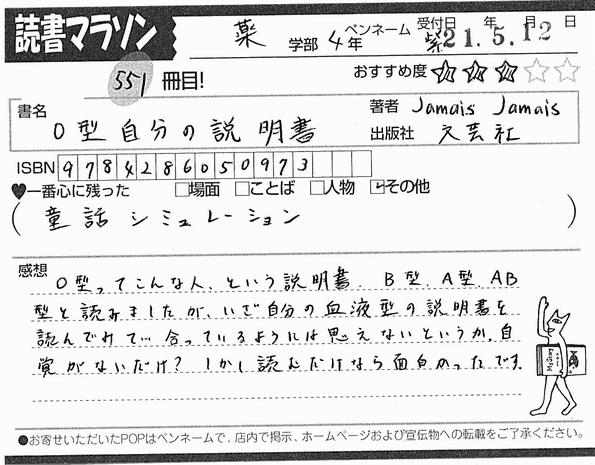 読書マラソン
薬 学部 4年 ペンネーム 紫 受付日 年 月 日
21.5.12
551 冊目!
おすすめ度 ★★★☆☆
書名 O型自分の説明書
著者 Jamais Jamais
出版社 文芸社
ISBN 9784286050973
♥一番心に残った □場面 □ことば □人物 ☑その他
(童話シミュレーション)
感想 O型ってこんな人、という説明書. B型、A型、AB
型と読みましたが、いざ自分の血液型の説明書を
読んでみて… 合っているようには思えないというか。自
覚がないだけ? しかし読んだけなら面白かったです。
●お寄せいただいたPOPはペンネームで、店内で掲示、ホームページおよび宣伝物への転載をご了承ください。